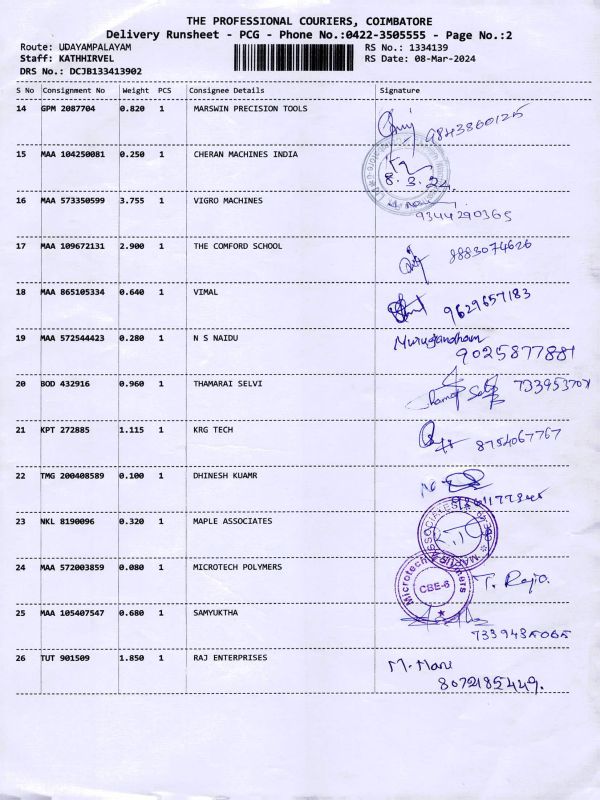 THE PROFESSIONAL COURIERS, COIMBATORE
Delivery Runsheet - PCG - Phone No.:0422-3505555 - Page No.:2
Route: UDAYAMPALAYAM RS No.: 1334139
Staff: KATHHIRVEL RS Date: 08-Mar-2024
DRS No.: DCJB133413902
S No Consignment No Weight PCS Consignee Details Signature
14 GPM 2087704 0.820 1 MARSWIN PRECISION TOOLS
9843360125
15 MAA 104250081 0.250 1 CHERAN MACHINES INDIA
8.3.24.
16 MAA 573350599 3.755 1 VIGRO MACHINES
9344290365
17 MAA 109672131 2.900 1 THE COMFORD SCHOOL 8883074626
18 MAA 865105334 0.640 1 VIMAL 9629657183
19 MAA 572544423 0.280 1 N S NAIDU Murugandham
9025877881
20 BOD 432916 0.960 1 THAMARAI SELVI
21 KPT 272885 1.115 1 KRG TECH 8754067767
22 TMG 200408589 0.100 1 DHINESH KUAMR
23 NKL 8190096 0.320 1 MAPLE ASSOCIATES
24 MAA 572003859 0.080 1 MICROTECH POLYMERS Microtech Polymers CBE-6 T. Rajo.
25 MAA 105407547 0.680 1 SAMYUKTHA
26 TUT 901509 1.850 1 RAJ ENTERPRISES M. Mani
8072185449.